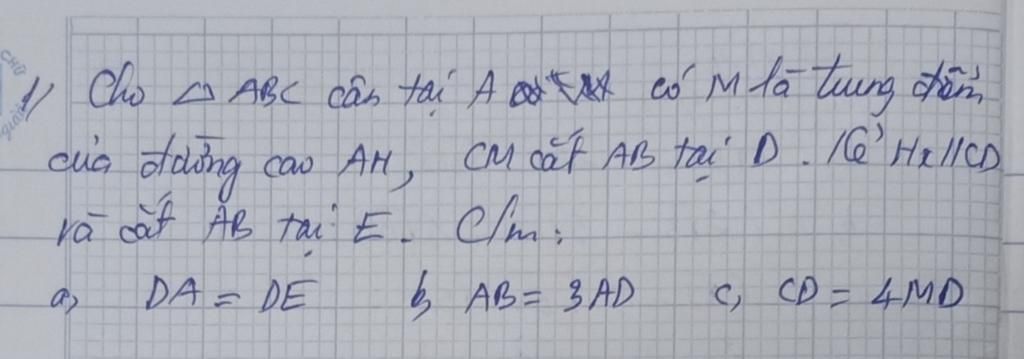 1/ Cho △ ABC cân tại A có M là trung điểm
của đường cao AH, CM cắt AB tại D. Kẻ Hx // CD
và cắt AB tại E. C/m:
a, DA = DE b, AB = 3AD c, CD = 4MD